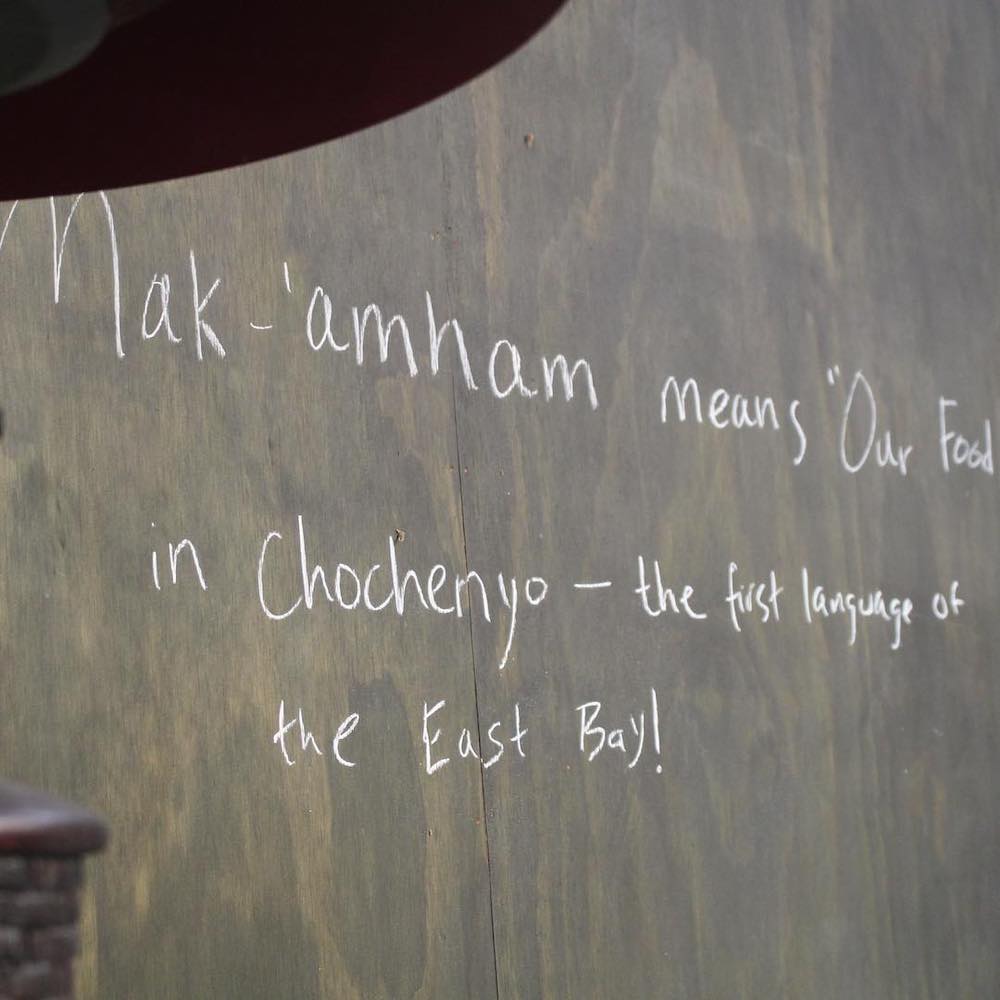 Mak-'amham means "Our Food
in Chochenyo – the first language of
the East Bay!